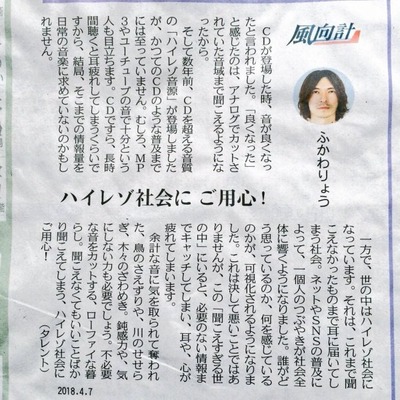 風向計
ふかわりょう
ＣＤが登場した時、音が良くなっ
たと言われました。「良くなった」
と感じたのは、アナログでカットさ
れていた音域まで聞こえるようにな
ったから。
そして数年前、ＣＤを超える音質
の「ハイレゾ音源」が登場しました
が、かつてのＣＤのような普及まで
には至っていません。むしろ、ＭＰ
３やユーチューブの音で十分という
人も目立ちます。ＣＤですら、長時
間聴くと耳疲れしてしまうくらいで
すから、結局、そこまでの情報量を
日常の音楽に求めていないのかもし
れません。
ハイレゾ社会に ご用心！
一方で、世の中はハイレゾ社会に
なっています。それは、これまで聞
こえなかったものまで耳に届いてし
まう社会。ネットやＳＮＳの普及に
よって、一個人のつぶやきが社会全
体に響くようになりました。誰がど
う思っているのか、何を感じている
のかが、可視化されるようになりま
した。これは決して悪いことではあ
りませんが、この「聞こえすぎる世
の中」にいると、必要のない情報ま
でキャッチしてしまい、耳や、心が
疲れてしまいます。
余計な音に気を取られて奪われ
た、鳥のさえずりや、川のせせら
ぎ、木々のざわめき。鈍感力や、気
にしない力も必要でしょう。不必要
な音をカットする、ローファイな暮
らし。聞こえなくてもいいことばか
り聞こえてしまう、ハイレゾ社会に
ご用心！
（タレント）
2018.4.7